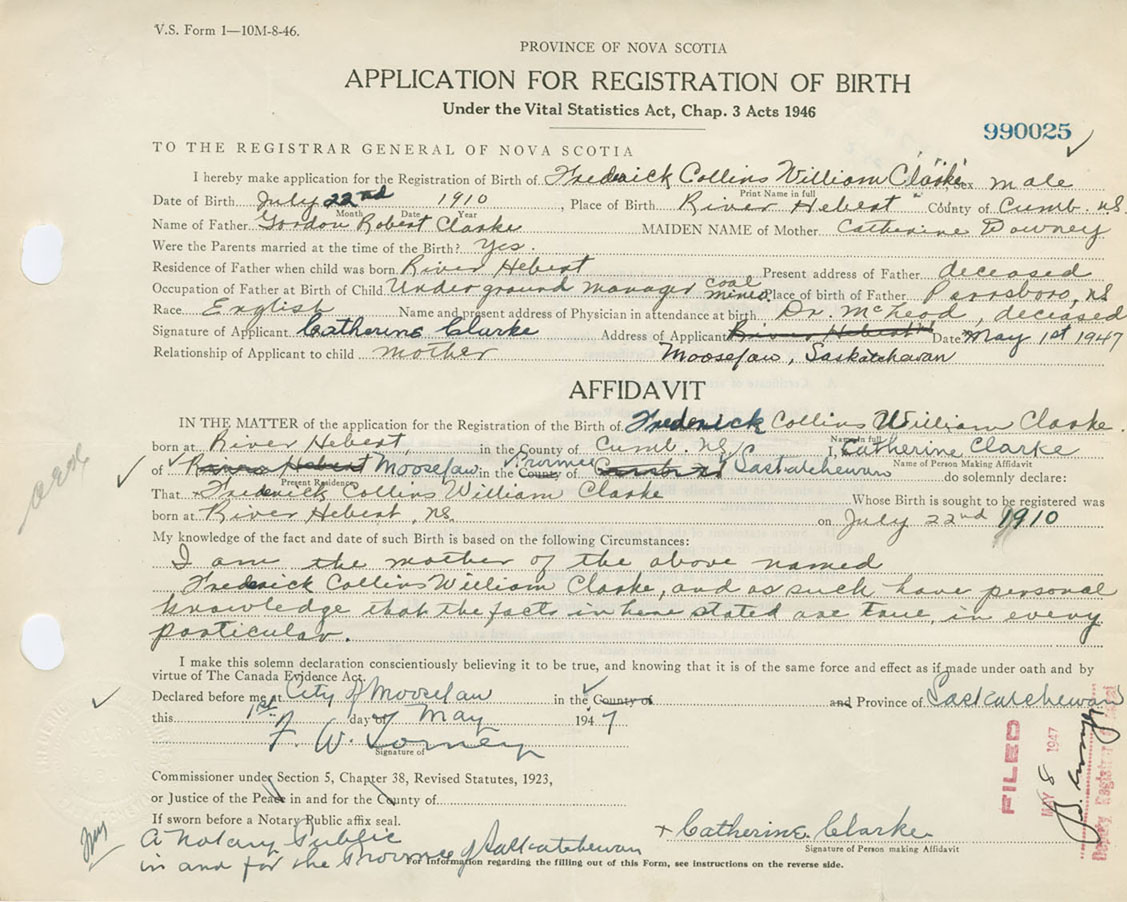 V.S. Form 1—10M-8-46.
PROVINCE OF NOVA SCOTIA
APPLICATION FOR REGISTRATION OF BIRTH
Under the Vital Statistics Act, Chap. 3 Acts 1946
990025
TO THE REGISTRAR GENERAL OF NOVA SCOTIA
I hereby make application for the Registration of Birth of Frederick Collins William Clarke Sex male
Print Name in full
Date of Birth July 22nd 1910, Place of Birth River Hebert County of Cumb. N.S.
Month Date Year
Name of Father Gordon Robert Clarke MAIDEN NAME of Mother Catherine Downey
Were the Parents married at the time of the Birth? Yes.
Residence of Father when child was born River Hebert Present address of Father deceased
Occupation of Father at Birth of Child Underground manager coal mines. Place of birth of Father Parrsboro, NS
Race English Name and present address of Physician in attendance at birth Dr. McLeod, deceased
Signature of Applicant Catherine Clarke Address of Applicant River Hebert Date May 1st 1947
Relationship of Applicant to child mother Moosejaw, Saskatchewan
AFFIDAVIT
IN THE MATTER of the application for the Registration of the Birth of Frederick Collins William Clarke.
Name in full
born at River Hebert, in the County of Cumb. NS I, Catherine Clarke
Name of Person Making Affidavit
of River Hebert Moosejaw in the County of Province Saskatchewan do solemnly declare:
Present Residence
That Frederick Collins William Clarke Whose Birth is sought to be registered was
born at River Hebert, NS. on July 22nd 1910
My knowledge of the fact and date of such Birth is based on the following Circumstances:
I am the mother of the above named
Frederick Collins William Clarke, and as such have personal
knowledge that the facts in here stated are true, in every
particular.
I make this solemn declaration conscientiously believing it to be true, and knowing that it is of the same force and effect as if made under oath and by
virtue of The Canada Evidence Act.
Declared before me at City of Moosejaw in the County of and Province of Saskatchewan
this 1st day of May 1947
F. W.
Signature of
Commissioner under Section 5, Chapter 38, Revised Statutes, 1923,
or Justice of the Peace in and for the County of
If sworn before a Notary Public affix seal.
A Notary Public
in and for the Province of Saskatchewan
+ Catherine Clarke
Signature of Person making Affidavit
For information regarding the filling out of this Form, see instructions on the reverse side.
FILED
MAY 8 1947
Deputy Registrar General